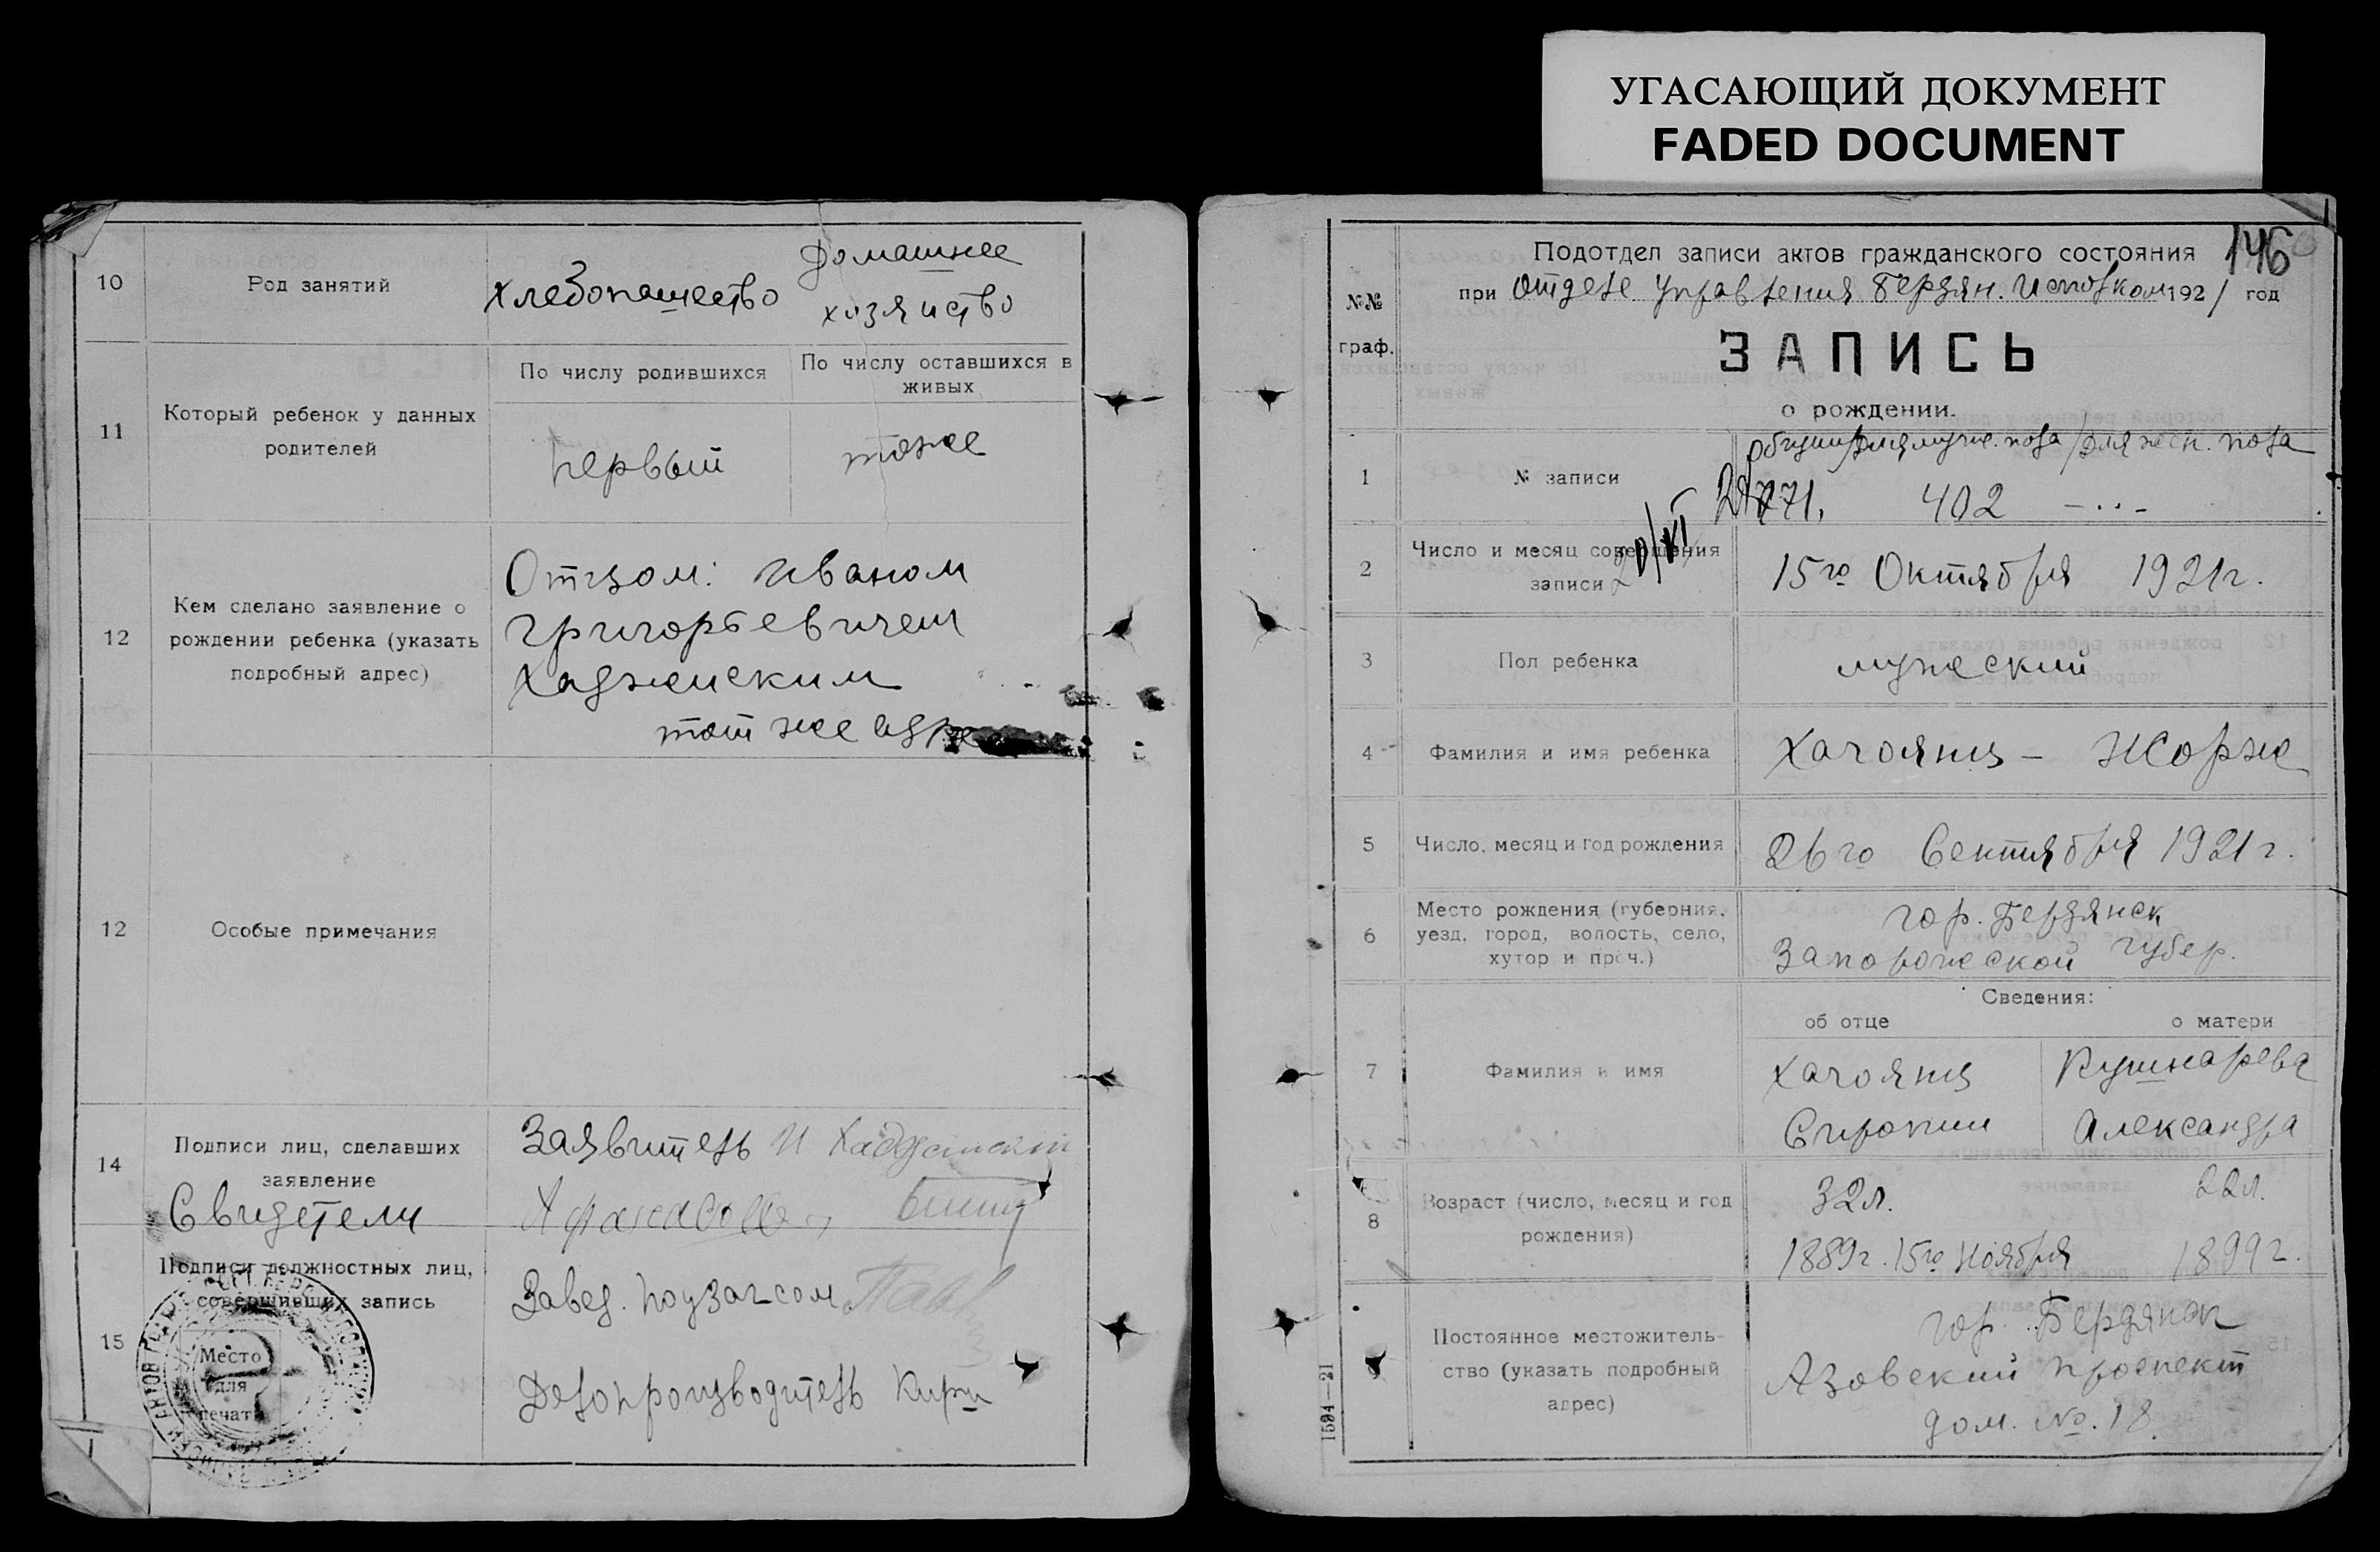 УГАСАЮЩИЙ ДОКУМЕНТ
FADED DOCUMENT
10
Род занятий
Хлебопашество
Домашнее
хозяйство
11
Который ребенок у данных
родителей
По числу родившихся
По числу оставшихся в
живых
первый
тоже
12
Кем сделано заявление о
рождении ребенка (указать
подробный адрес)
Отцом: Иваном
Григорьевичем
Хаджийским
тот же адрес
12
Особые примечания
14
Подписи лиц, сделавших
заявление
Свидетели
Заявитель И Хаджийский
15
Подписи должностных лиц,
совершивших запись
Место
для
печати
Завед. подзагсом
Делопроизводитель
146
№№
граф.
Подотдел записи актов гражданского состояния
при Отделе Управления Бердян. Исполком 1921 год
ЗАПИСЬ
о рождении.
1
№ записи
общий/для муже. пола/для жен. пола
402 – . . –
2
Число и месяц совершения
записи
20/XI
15го Октября 1921г.
3
Пол ребенка
мужеский
4
Фамилия и имя ребенка
Хачоянц – Жорж
5
Число, месяц и год рождения
26го Сентября 1921 г.
6
Место рождения (губерния,
уезд, город, волость, село,
хутор и проч.)
гор. Бердянск
Запорожеской губер.
Сведения:
об отце
о матери
7
Фамилия и имя
Хачоянц
Кушнарева
Александра
8
Возраст (число, месяц и год
рождения)
32л.
22л.
1889г. 15го Ноября
1899г.
9
Постоянное местожитель-
ство (указать подробный
адрес)
гор. Бердянск
Азовский проспект
дом. №. 18.
1594—21